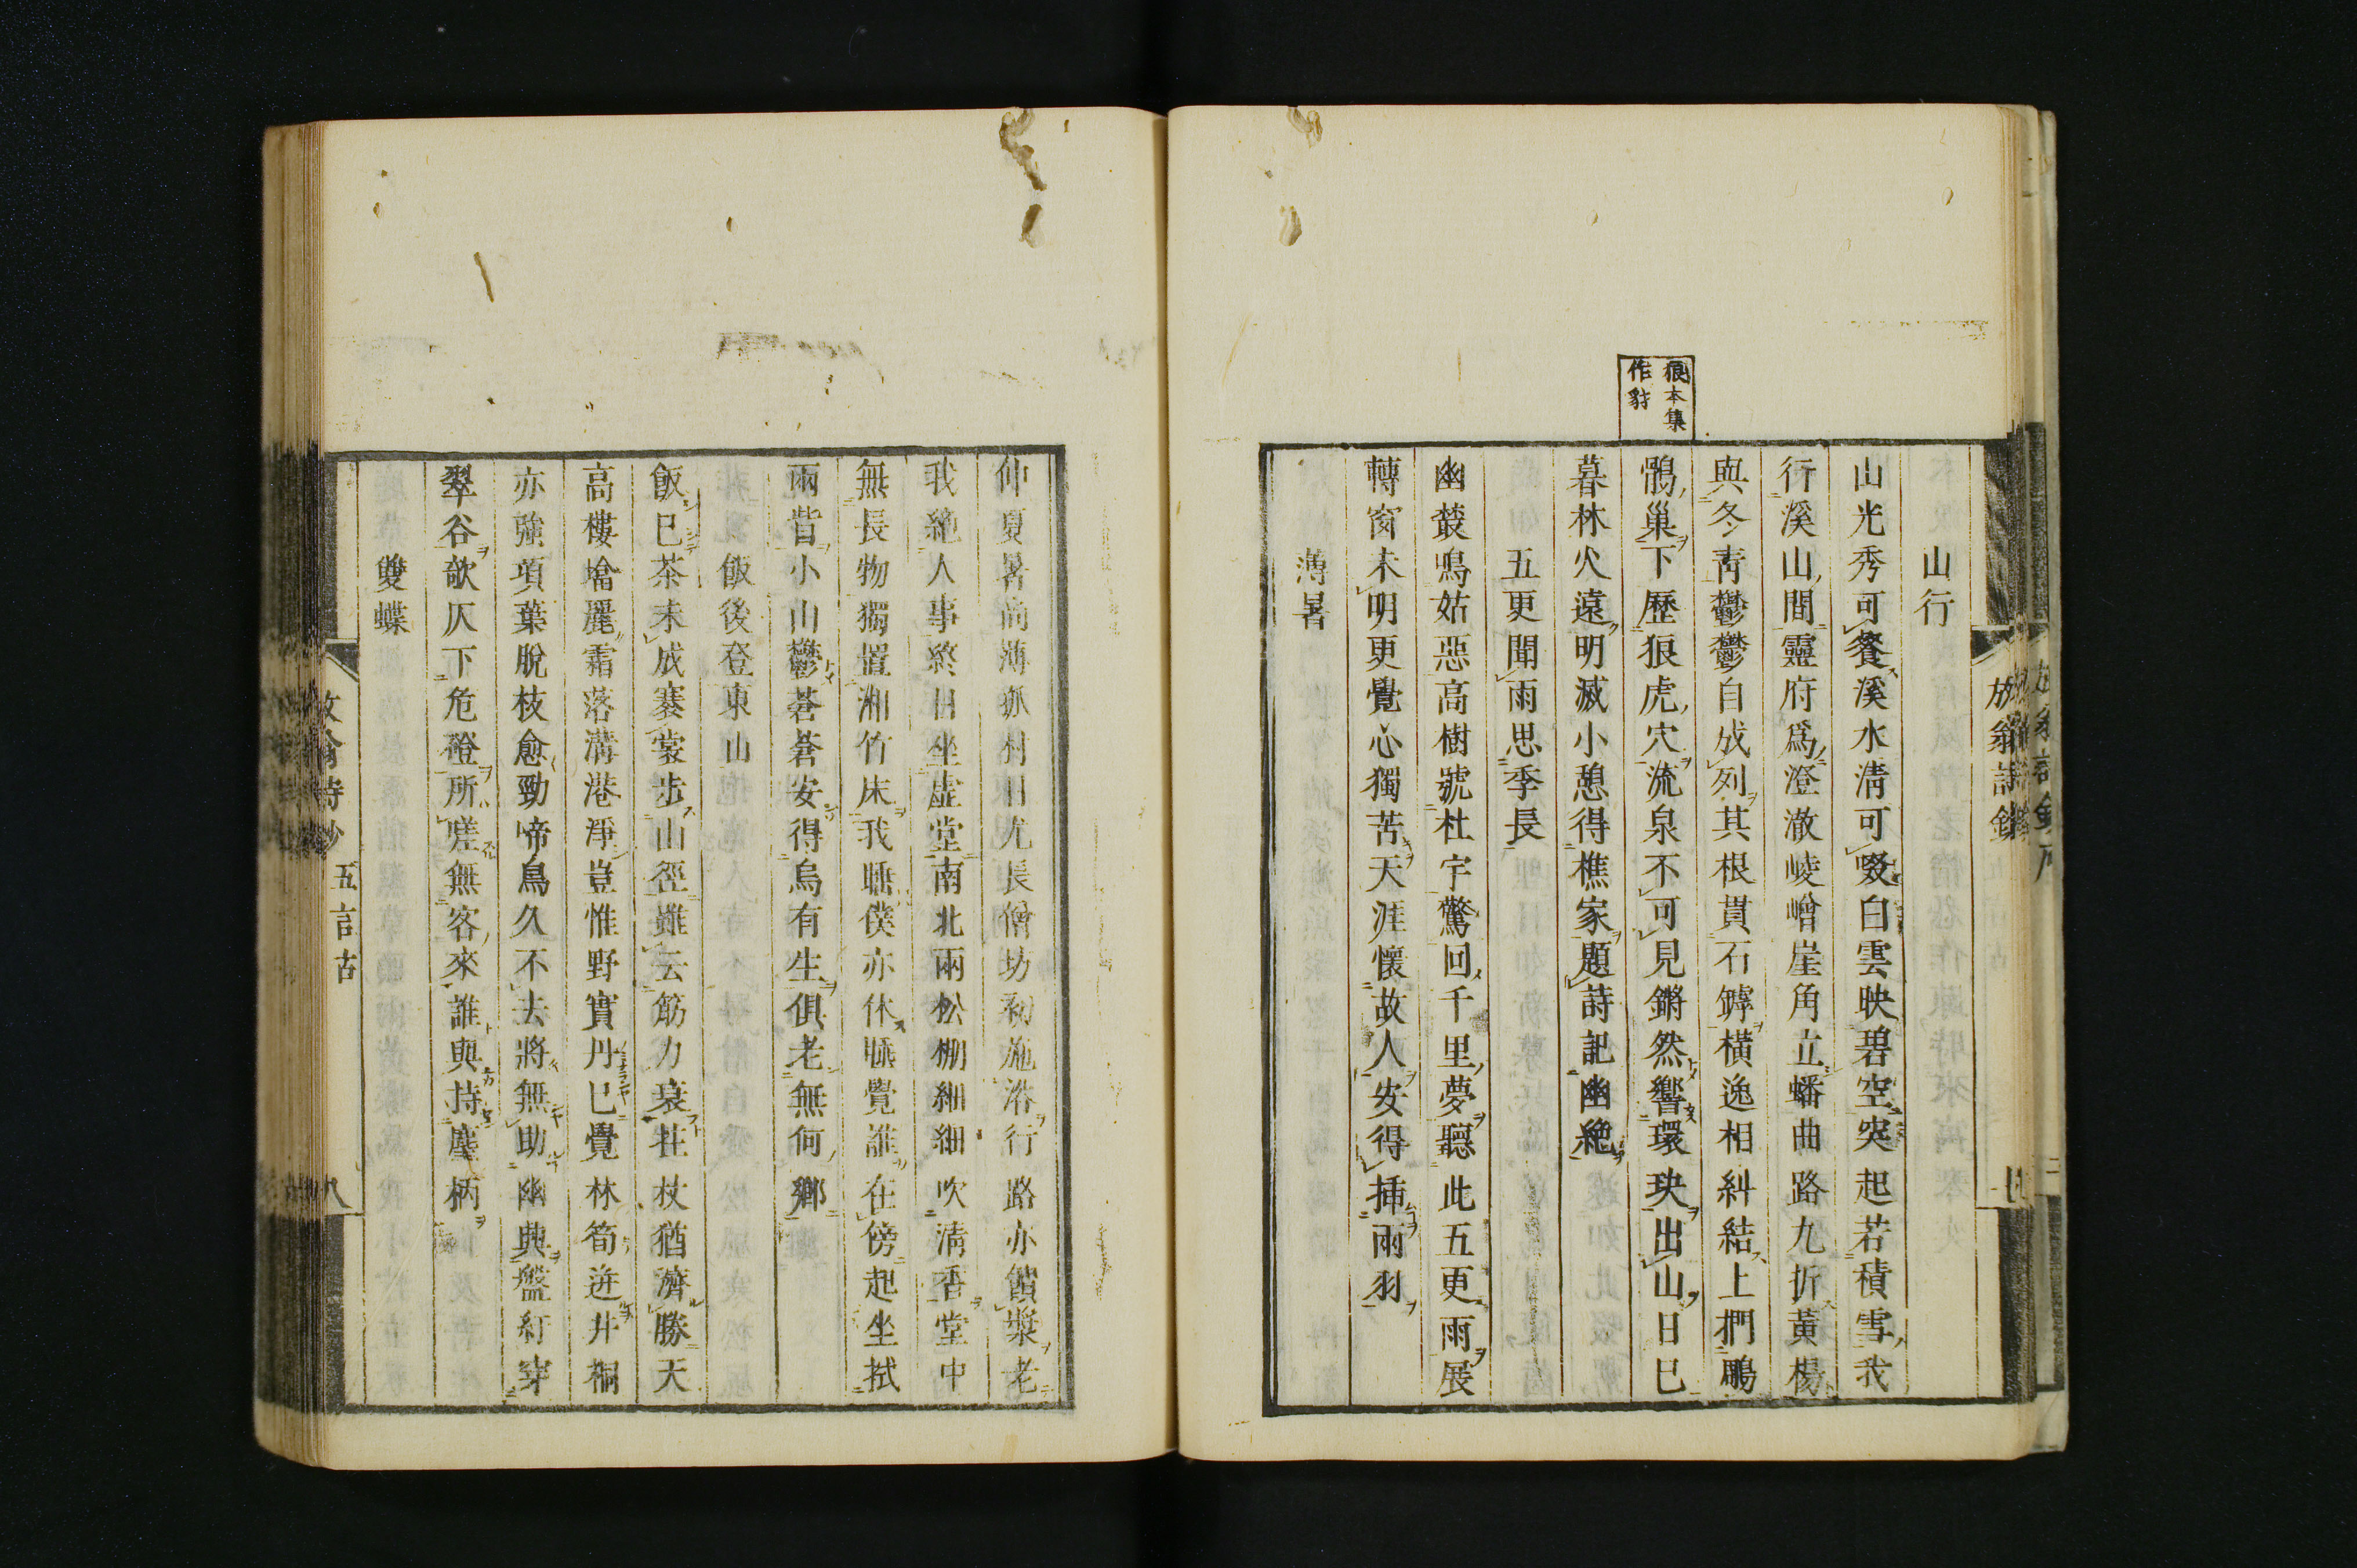 狼本集
作豺
山行
山光秀可餐溪水淸可啜白雲映碧空突起若積雪我
行溪山間靈府爲澄澈崚嶒崖角立蟠曲路九折黃楊
與冬靑鬱鬱自成列其根貫石罅橫逸相糾結上捫鵰
鶻巢下歷狼虎穴流泉不可見鏘然響環玦出山日已
暮林火遠明滅小憩得樵家題詩記幽絶
五更聞雨思季長
幽叢鳴姑惡高樹號杜宇驚回千里夢聽此五更雨展
轉窗未明更覺心獨苦天涯懷故人安得插兩羽
薄暑
放翁詩鈔
七
仲夏暑尚薄孤村日尤長僧坊初施浴行路亦饋漿老
我絶人事終日坐虛堂南北兩松棚細細吹淸香堂中
無長物獨置湘竹床我睡僕亦休睡覺誰在傍起坐拭
兩眥小山鬱蒼蒼安得烏有生俱老無何鄉
飯後登東山
飯已茶未成褰裳步山徑雖云筋力衰拄杖猶濟勝天
高樓堞麗霜落溝港淨豈惟野實丹已覺林筍迸井桐
亦強項葉脫枝愈勁啼鳥久不去將無助幽興盤紆穿
翠谷欹仄下危磴所嗟無客來誰與持麈柄
雙蝶
五言古
八